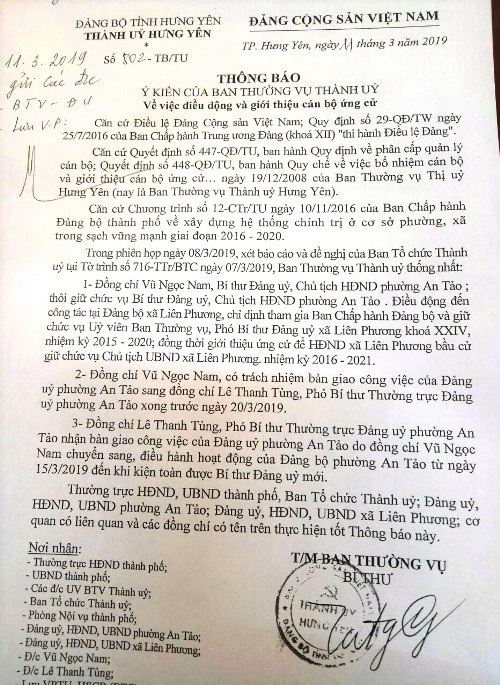 ĐẢNG BỘ TỈNH HƯNG YÊN
THÀNH UỶ HƯNG YÊN
*
Số 502-TB/TU
ĐẢNG CỘNG SẢN VIỆT NAM
TP. Hưng Yên, ngày 11 tháng 3 năm 2019
11.3.2019
gửi Các đ/c
BTV - ĐU
Lưu V.P:
THÔNG BÁO
Ý KIẾN CỦA BAN THƯỜNG VỤ THÀNH UỶ
Về việc điều động và giới thiệu cán bộ ứng cử
Căn cứ Điều lệ Đảng Cộng sản Việt Nam; Quy định số 29-QĐ/TW ngày
25/7/2016 của Ban Chấp hành Trung ương Đảng (khoá XII) "thi hành Điều lệ Đảng".
Căn cứ Quyết định số 447-QĐ/TU, ban hành Quy định về phân cấp quản lý
cán bộ; Quyết định số 448-QĐ/TU, ban hành Quy chế về việc bổ nhiệm cán bộ
và giới thiệu cán bộ ứng cử... ngày 19/12/2008 của Ban Thường vụ Thị uỷ
Hưng Yên (nay là Ban Thường vụ Thành uỷ Hưng Yên).
Căn cứ Chương trình số 12-CTr/TU ngày 10/11/2016 của Ban Chấp hành
Đảng bộ thành phố về xây dựng hệ thống chính trị ở cơ sở phường, xã
trong sạch vững mạnh giai đoạn 2016 - 2020.
Trong phiên họp ngày 08/3/2019, xét báo cáo và đề nghị của Ban Tổ chức Thành
uỷ tại Tờ trình số 716-TTr/BTC ngày 07/3/2019, Ban Thường vụ Thành uỷ thống nhất:
1- Đồng chí Vũ Ngọc Nam, Bí thư Đảng uỷ, Chủ tịch HĐND phường An Tảo ;
thôi giữ chức vụ Bí thư Đảng uỷ, Chủ tịch HĐND phường An Tảo . Điều động đến
công tác tại Đảng bộ xã Liên Phương, chỉ định tham gia Ban Chấp hành Đảng bộ và giữ
chức vụ Uỷ viên Ban Thường vụ, Phó Bí thư Đảng uỷ xã Liên Phương khoá XXIV,
nhiệm kỳ 2015 - 2020; đồng thời giới thiệu ứng cử để HĐND xã Liên Phương bầu cử
giữ chức vụ Chủ tịch UBND xã Liên Phương. nhiệm kỳ 2016 - 2021.
2- Đồng chí Vũ Ngọc Nam, có trách nhiệm bàn giao công việc của Đảng
uỷ phường An Tảo sang đồng chí Lê Thanh Tùng, Phó Bí thư Thường trực Đảng
uỷ phường An Tảo xong trước ngày 20/3/2019.
3- Đồng chí Lê Thanh Tùng, Phó Bí thư Thường trực Đảng uỷ phường An
Tảo nhận bàn giao công việc của Đảng uỷ phường An Tảo do đồng chí Vũ Ngọc
Nam chuyển sang, điều hành hoạt động của Đảng bộ phường An Tảo từ ngày
15/3/2019 đến khi kiện toàn được Bí thư Đảng uỷ mới.
Thường trực HĐND, UBND thành phố, Ban Tổ chức Thành uỷ; Đảng uỷ,
HĐND, UBND phường An Tảo; Đảng uỷ, HĐND, UBND xã Liên Phương; cơ
quan có liên quan và các đồng chí có tên trên thực hiện tốt Thông báo này.
Nơi nhận:
- Thường trực HĐND thành phố;
- UBND thành phố;
- Các đ/c UV BTV Thành uỷ;
- Ban Tổ chức Thành uỷ;
- Phòng Nội vụ thành phố;
- Đảng uỷ, HĐND, UBND phường An Tảo;
- Đảng uỷ, HĐND, UBND xã Liên Phương;
- Đ/c Vũ Ngọc Nam;
- Đ/c Lê Thanh Tùng;
T/M BAN THƯỜNG VỤ
BÍ THƯ
THÀNH UỶ
HƯNG YÊN